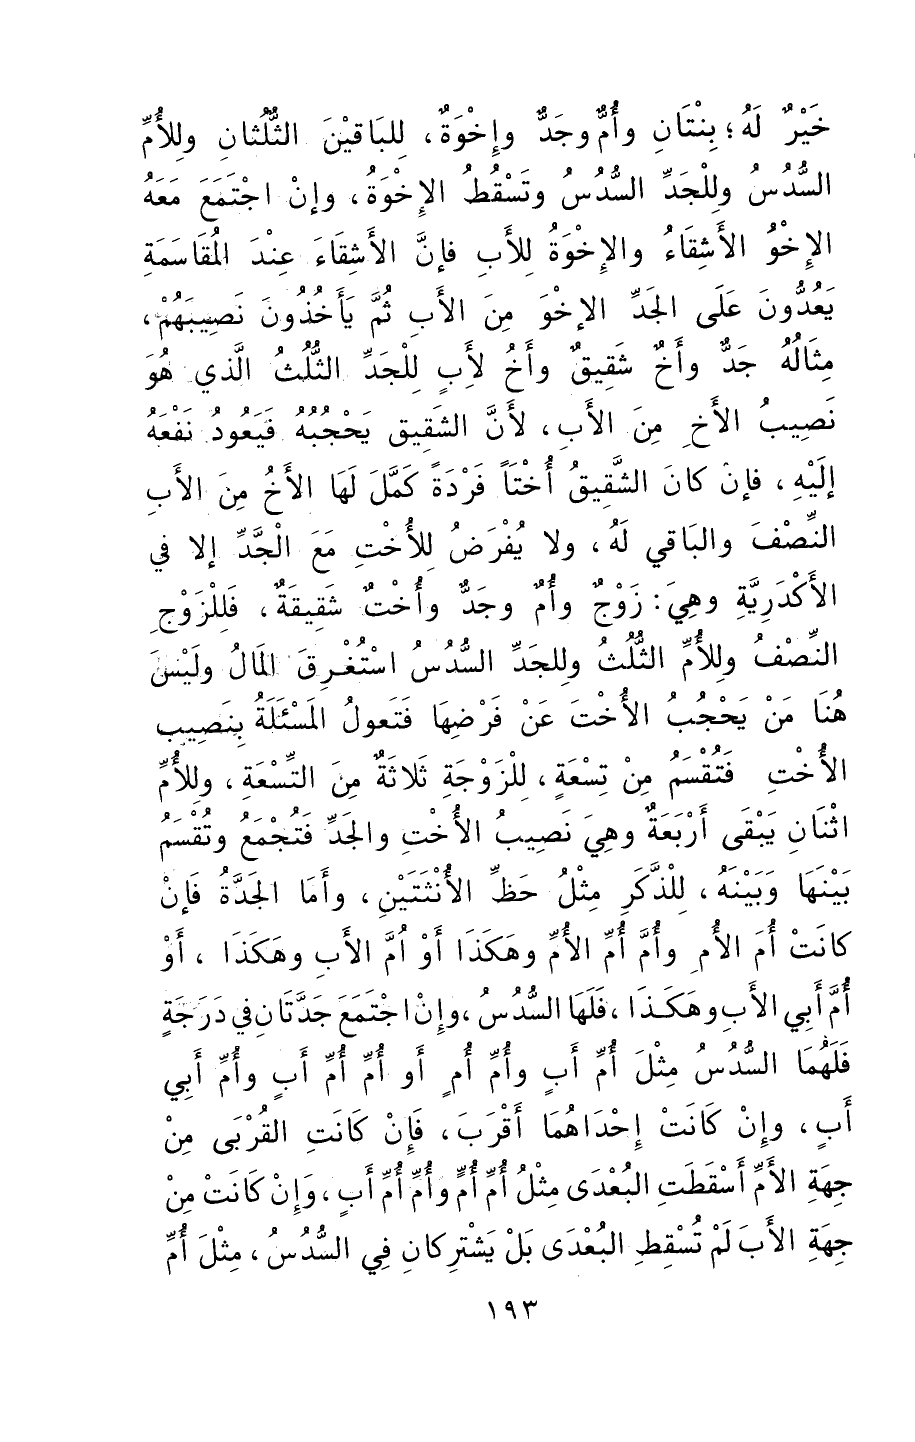 خَيْرٌ لَهُ؛ بِنْتَانِ وأُمٌّ وجَدٌّ وإِخْوَةٌ، لِلبَاقيْنَ الثُّلُثانِ ولِلأُمِّ
السُّدُسُ ولِلْجَدِّ السُّدُسُ وتَسْقُطُ الإِخْوَةُ، وإنْ اجْتَمَعَ مَعَهُ
الإِخْوُ الأَشِقَاءُ والإِخْوَةُ لِلأَبِ فإنَّ الأَشِقَاءَ عِنْدَ المُقَاسَمَةِ
يَعُدُّونَ عَلَى الجَدِّ الإخْوَ مِنَ الأَبِ ثُمَّ يَأْخُذُونَ نَصِيبَهُمْ،
مِثَالُهُ جَدٌّ وأَخٌ شَقِيقٌ وأَخُ لأَبٍ لِلْجَدِّ الثُّلُثُ الَّذي هُوَ
نَصِيبُ الأَخِ مِنَ الأَبِ، لأَنَّ الشَقِيق يَحْجُبُهُ فَيَعُودُ نَفْعَهُ
إلَيْهِ، فإنْ كانَ الشَّقِيقُ أُخْتَاً فَرْدَةً كَمَّلَ لَهَا الأَخُ مِنَ الأَبِ
النِّصْفَ والبَاقي لَهُ، ولا يُفْرَضُ لِلأُخْتِ مَعَ الْجَّدِّ إلا في
الأَكْدَرِيَّةِ وهِيَ: زَوْجٌ وأُمٌ وجَدٌّ وأُخْتٌ شَقِيقَةٌ، فَلِلزَوْجِ
النِّصْفُ ولِلأُمِّ الثُّلُثُ وللجَدِّ السُّدُسُ اسْتُغْرِقَ المَالُ ولَيْسَ
هُنَا مَنْ يَحْجُبُ الأُخْتَ عَنْ فَرْضِهَا فَتَعولُ المَسْئَلَةُ بِنَصِيبِ
الأُخْتِ فَتُقْسَمُ مِنْ تِسْعَةٍ، لِلْزَوْجَةِ ثَلاثَةٌ مِنَ التِّسْعَةِ، وللأُمِّ
اثْنَانِ يَبْقَى أَرْبَعَةٌ وهِيَ نَصِيبُ الأُخْتِ والجَدِّ فَتُجْمَعُ وتُقْسَمُ
بَيْنَهَا وَبَيْنَهُ، لِلذَّكَرِ مِثْلُ حَظِّ الأُنْثَتَيْنِ، وأَمَا الجَدَّةُ فَإنْ
كانَتْ أُمَ الأُمِ وأُمَّ أُمِّ الأُمِّ وهَكَذَا أَوْ اُمَّ الأَبِ وهَكَذَا ، أَوْ
أُمَّ أَبِي الأَبِ وهَكَذا ، فَلَهَا السُّدُسُ ، وإِنْ اجْتَمَعَ جَدَّتَانِ في دَرَجَةٍ
فَلَهُمَا السُّدُسُ مِثْلَ أُمِّ أَبٍ وأُمِّ أُمٍ أَو أُمِّ أُمِّ أَبٍ وأُمِّ أَبِي
أَبٍ، وإِنْ كَانَتْ إِحْدَاهُمَا أَقْرَبَ، فَإِنْ كَانَتِ القُرْبَى مِنْ
جِهَةِ الأمِّ أَسْقَطَتِ البُعْدَى مِثْلُ أُمِّ أُمٍّ وأُمِّ أُمِّ أَبٍ، وَإِنْ كَانَتْ مِنْ
جِهَةِ الأَبَ لَمْ تُسْقِطِ البُعْدَى بَلْ يَشْتَرِكانِ فِي السُّدُسُ، مِثْلَ أُمِّ
١٩٣